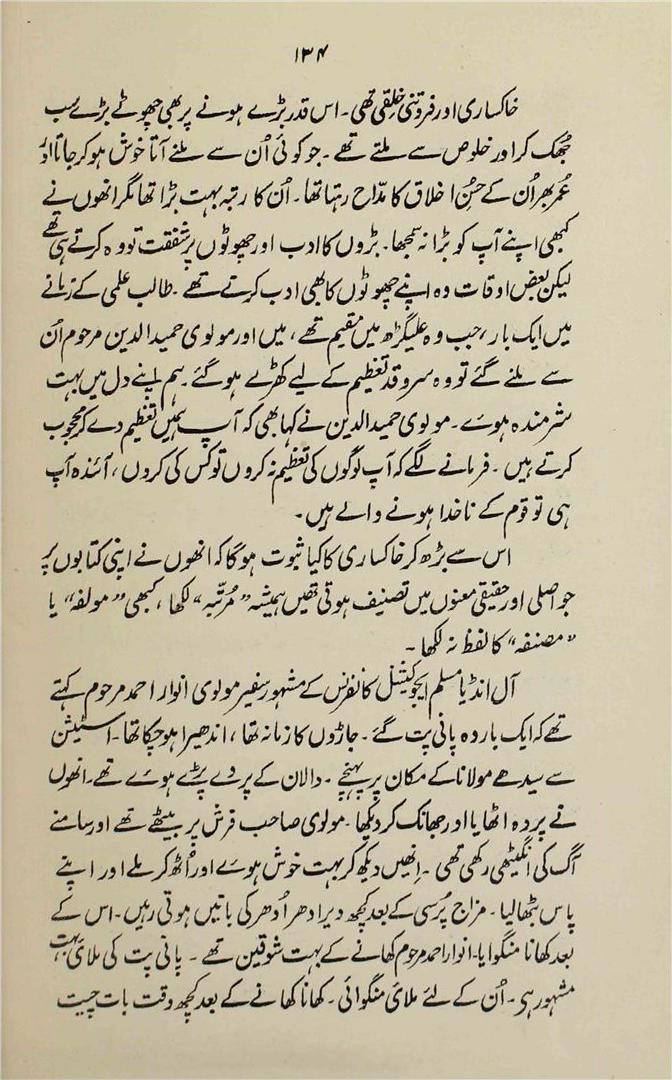 ۱۳۴
خاکساری اور فروتنی خلقی تھی۔ اس قدر بڑے ہونے پر بھی چھوٹے بڑے سب
جھک کر اور خلوص سے ملتے تھے۔ جو کوئی اُن سے ملنے آتا خوش ہو کر جاتا اور
عمر بھر اُن کے حسنِ اخلاق کا مدّاح رہتا تھا۔ اُن کا رتبہ بہت بڑا تھا مگر انھوں نے
کبھی اپنے آپ کو بڑا نہ سمجھا۔ بڑوں کا ادب اور چھوٹوں پر شفقت تو وہ کرتے ہی تھے
لیکن بعض اوقات وہ اپنے چھوٹوں کا بھی ادب کرتے تھے۔ طالب علمی کے زمانے
میں ایک بار، جب وہ علیگڑھ میں مقیم تھے، میں اور مولوی حمید الدین مرحوم اُن
سے ملنے گئے تو وہ سرو قد تعظیم کے لیے کھڑے ہو گئے۔ ہم اپنے دل میں بہت
شرمندہ ہوے۔ مولوی حمید الدین نے کہا بھی کہ آپ ہمیں تعظیم دے کر محجوب
کرتے ہیں۔ فرمانے لگے کہ آپ لوگوں کی تعظیم نہ کروں تو کس کی کروں، آئندہ آپ
ہی تو قوم کے ناخدا ہونے والے ہیں۔
اس سے بڑھ کر خاکساری کا کیا ثبوت ہوگا کہ انھوں نے اپنی کتابوں پر
جو اصلی اور حقیقی معنوں میں تصنیف ہوتی تھیں ہمیشہ ”مُرتّبہ“ لکھا، کبھی ”مولفہ“ یا
”مصنفہ“ کا لفظ نہ لکھا۔
آل انڈیا مسلم ایجوکیشنل کانفرنس کے مشہور سفیر مولوی انوار احمد مرحوم کہتے
تھے کہ ایک بار وہ پانی پت گئے۔ جاڑوں کا زمانہ تھا، اندھیرا ہو چکا تھا۔ اسٹیشن
سے سیدھے مولانا کے مکان پر پہنچے۔ دالان کے پردے پڑے ہوے تھے۔ انھوں
نے پردہ اٹھایا اور جھانک کر دیکھا۔ مولوی صاحب فرش پر بیٹھے تھے اور سامنے
آگ کی انگیٹھی رکھی تھی۔ اِنھیں دیکھ کر بہت خوش ہوے اور اُٹھ کر ملے اور اپنے
پاس بٹھالیا۔ مزاج پُرسی کے بعد کچھ دیر ادھر اُدھر کی باتیں ہوتی رہیں۔ اس کے
بعد کھانا منگوایا۔ انوار احمد مرحوم کھانے کے بہت شوقین تھے۔ پانی پت کی ملائی بہت
مشہور ہی۔ اُن کے لئے ملائی منگوائی۔ کھانا کھانے کے بعد کچھ وقت بات چیت